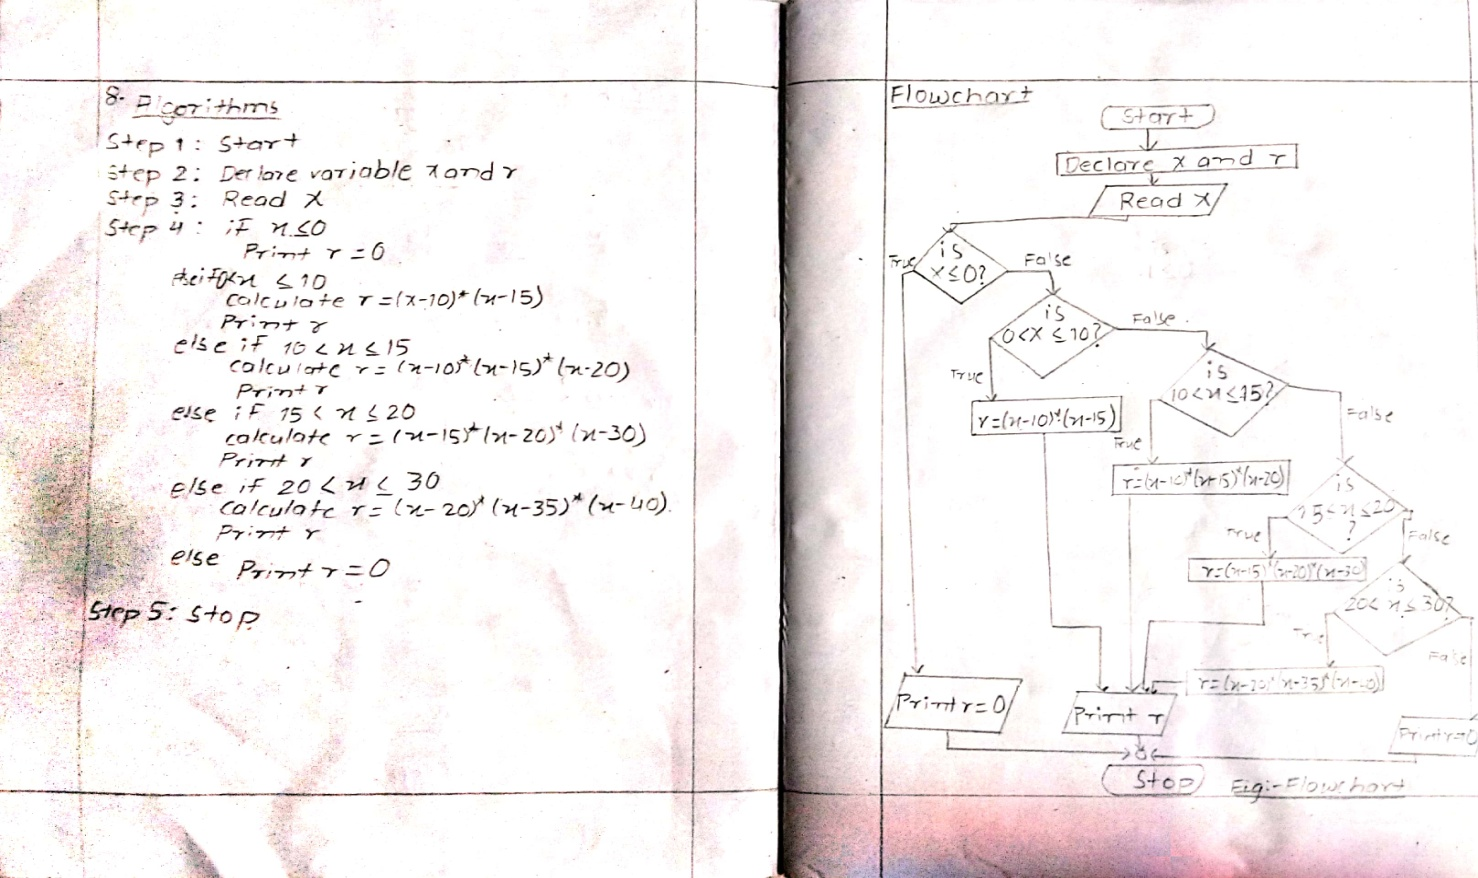 8. Algorithms
Step 1: Start
Step 2: Declare variable x and r
Step 3: Read X
Step 4: if x≤0
Print r=0
else if 0<x ≤10
calculate r=(x-10)*(x-15)
Print r
else if 10<x≤15
calculate r=(x-10)*(x-15)*(x-20)
Print r
else if 15<x≤20
calculate r=(x-15)*(x-20)*(x-30)
Print r
else if 20<x≤30
calculate r=(x-20)*(x-35)*(x-40).
Print r
else
Print r=0
Step 5: Stop
Flowchart
Start
Declare x and r
Read X
is
x≤0?
True
False
is
0<x≤10?
False
True
is
10<x≤15?
False
r=(x-10)*(x-15)
True
r=(x-10)*(x-15)*(x-20)
is
15<x≤20
?
True
False
r=(x-15)*(x-20)*(x-30)
is
20<x≤30?
True
False
r=(x-20)*(x-35)*(x-40)
Print r=0
Print r
Print r=0
Stop
Fig:-Flowchart